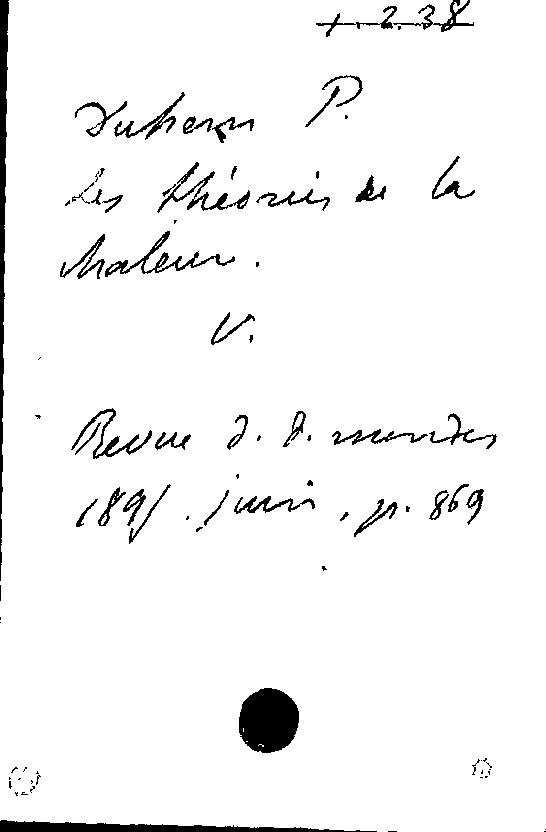 1.2.38
Duhem P.
Les théories de la
chaleur.
V.
Revue d. d. mondes
1895. juin, p. 869